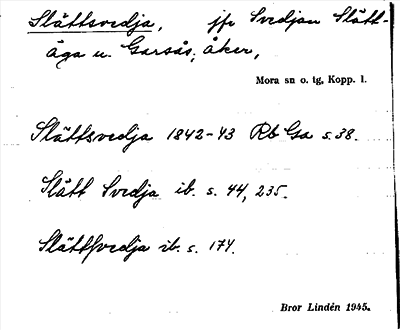 Slättsvedja, jfr Svedjan Slätt-
äga u. Garsås, åker,
Mora sn o. tg, Kopp. l.
Slättsvedja 1842-43 Rb Gsa s. 38.
Slätt Svedja ib. s. 44, 235.
Slättsvedja ib. s. 174.
Bror Lindén 1945.